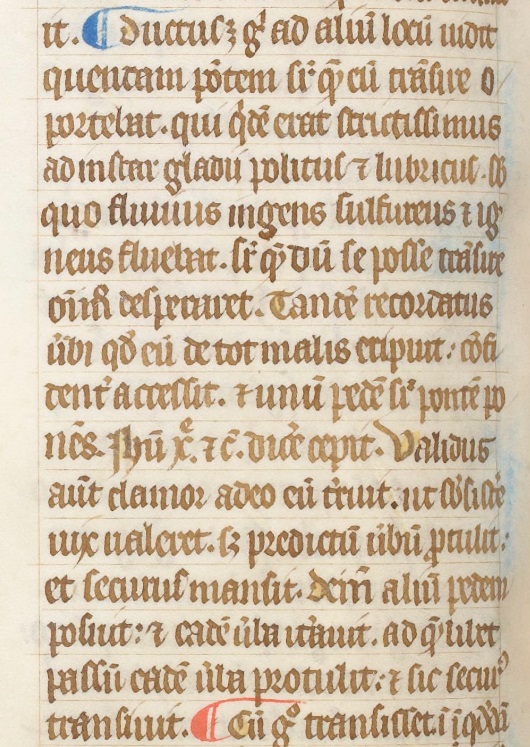 it. ¶ Ductusqꝫ gͦ ad aliū locū uidit
quendam põtem sr̾ q̄ eū trãsire o
portebat. qui q̇dē erat strictissimus
ad instar gladii politus ⁊ lubricus. sb̾
quo fluuius ingens sulfureus ⁊ ig
neus fluebat. sr̾ q̄ dū se posse trãsire
om̄ı̃ desperaret. Tandē recordatus
ūbi qd̾ eū de tot malis eripuit: cõfi
dent̾ accessit. ⁊ unū pedē sr̾ pontē po
nēs. Jhū xͤ. ⁊ c̄. dicẽ cepit. Validus
aūt clamor adeo eū t̾ruit. ut sb̾sistẽ
uix ualeret. sꝫ predictū ūbū ꝓtulit:
et securus mansit. Dein̄ aliū pedem
posuit: ⁊ eadē ūba it̾auit. ad q̄mlibet
passū eadē ūba protulit: ⁊ sic securꝰ
transiuit. ¶ Cū gͦ transisset. ī